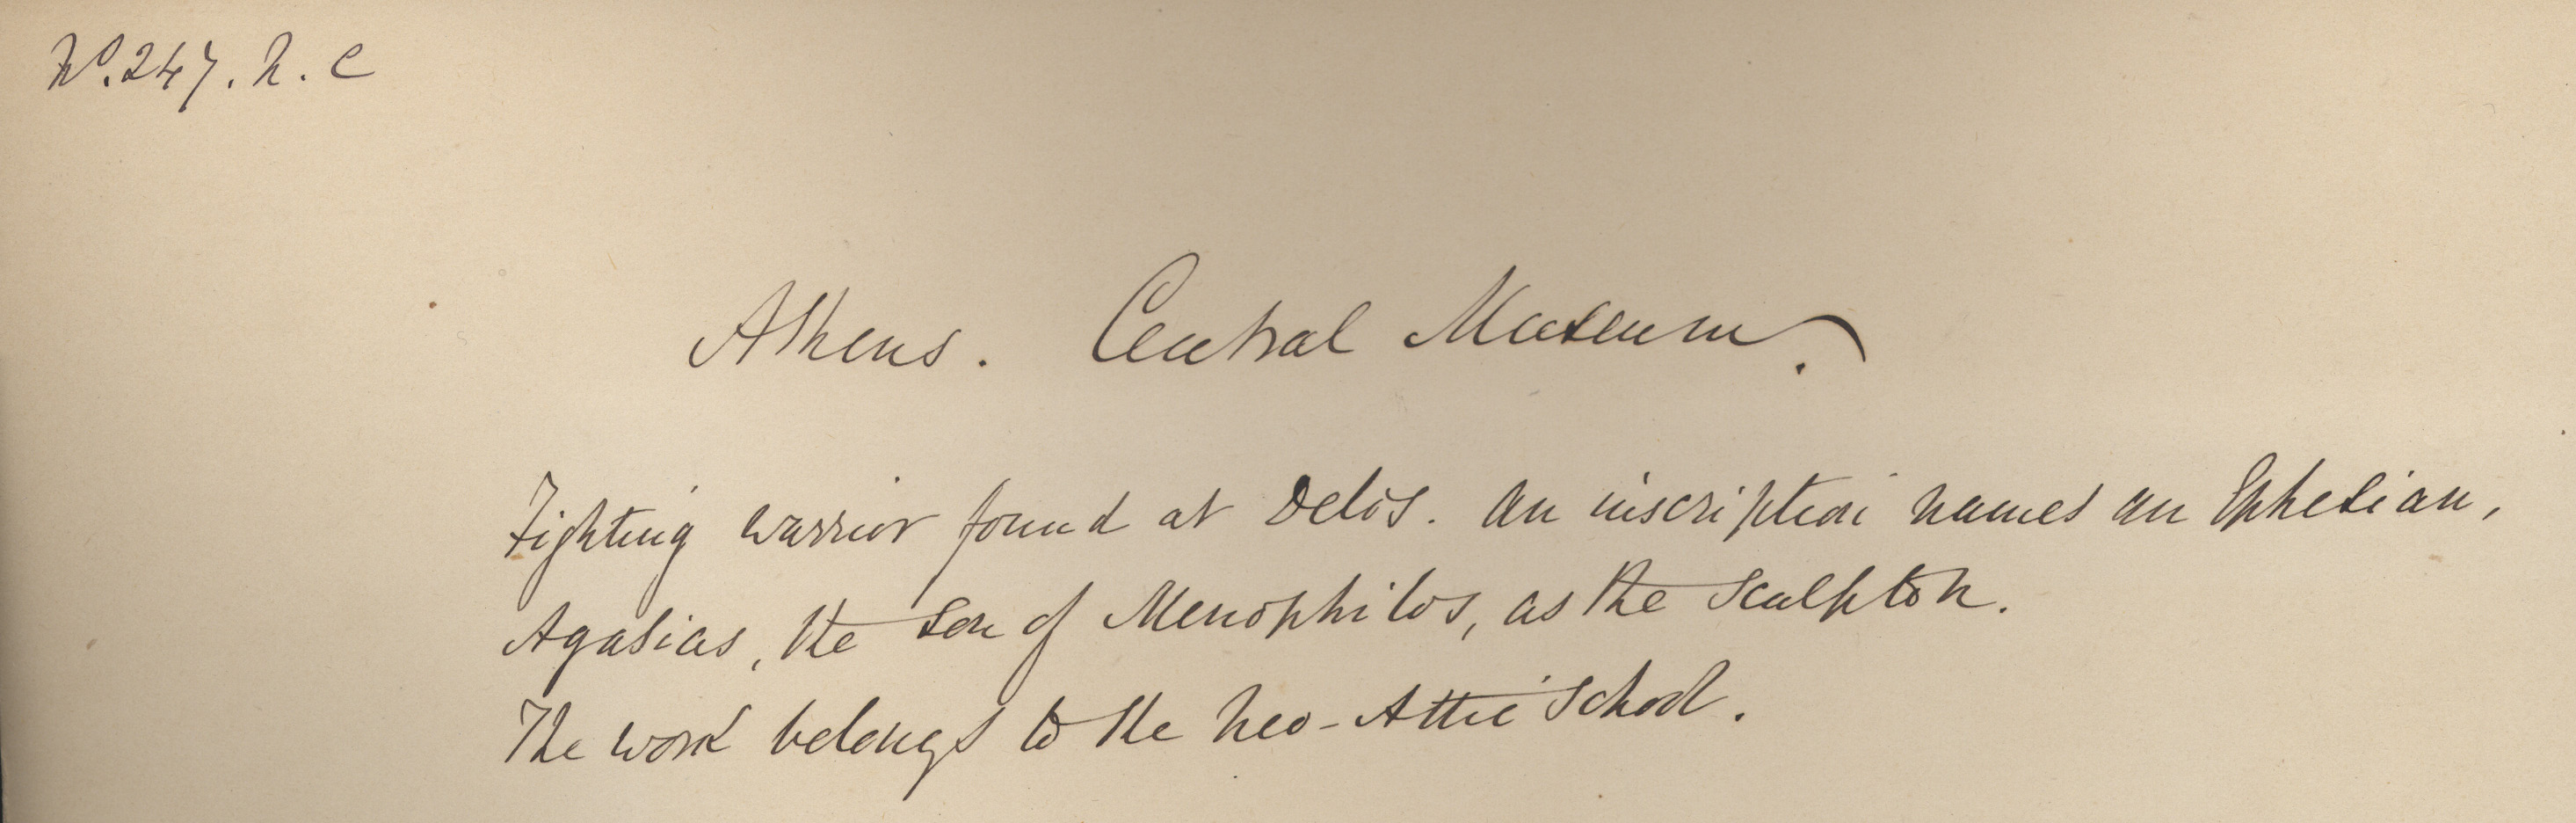 No. 247. N. C
Athens. Central Museum.
Fighting warrior found at Delos. An inscription names an Ephesian,
Agasias, the son of Menophilos, as the sculptor.
The work belongs to the Neo-Attic School.